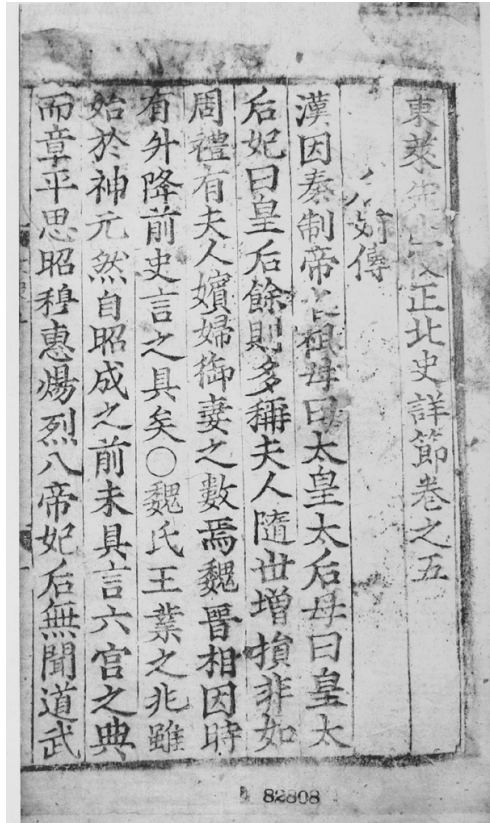 東萊先生校正北史詳節卷之五
后妃傳
漢因秦制帝之祖母曰太皇太后母曰皇太
后妃曰皇后餘則多稱夫人隨世增損非如
周禮有夫人嬪婦御妻之數焉魏晉相因時
有升降前史言之具矣○魏氏王業之兆雖
始於神元然自昭成之前未具言六宮之典
而章平思昭穆惠煬烈八帝妃后無聞道武
82808